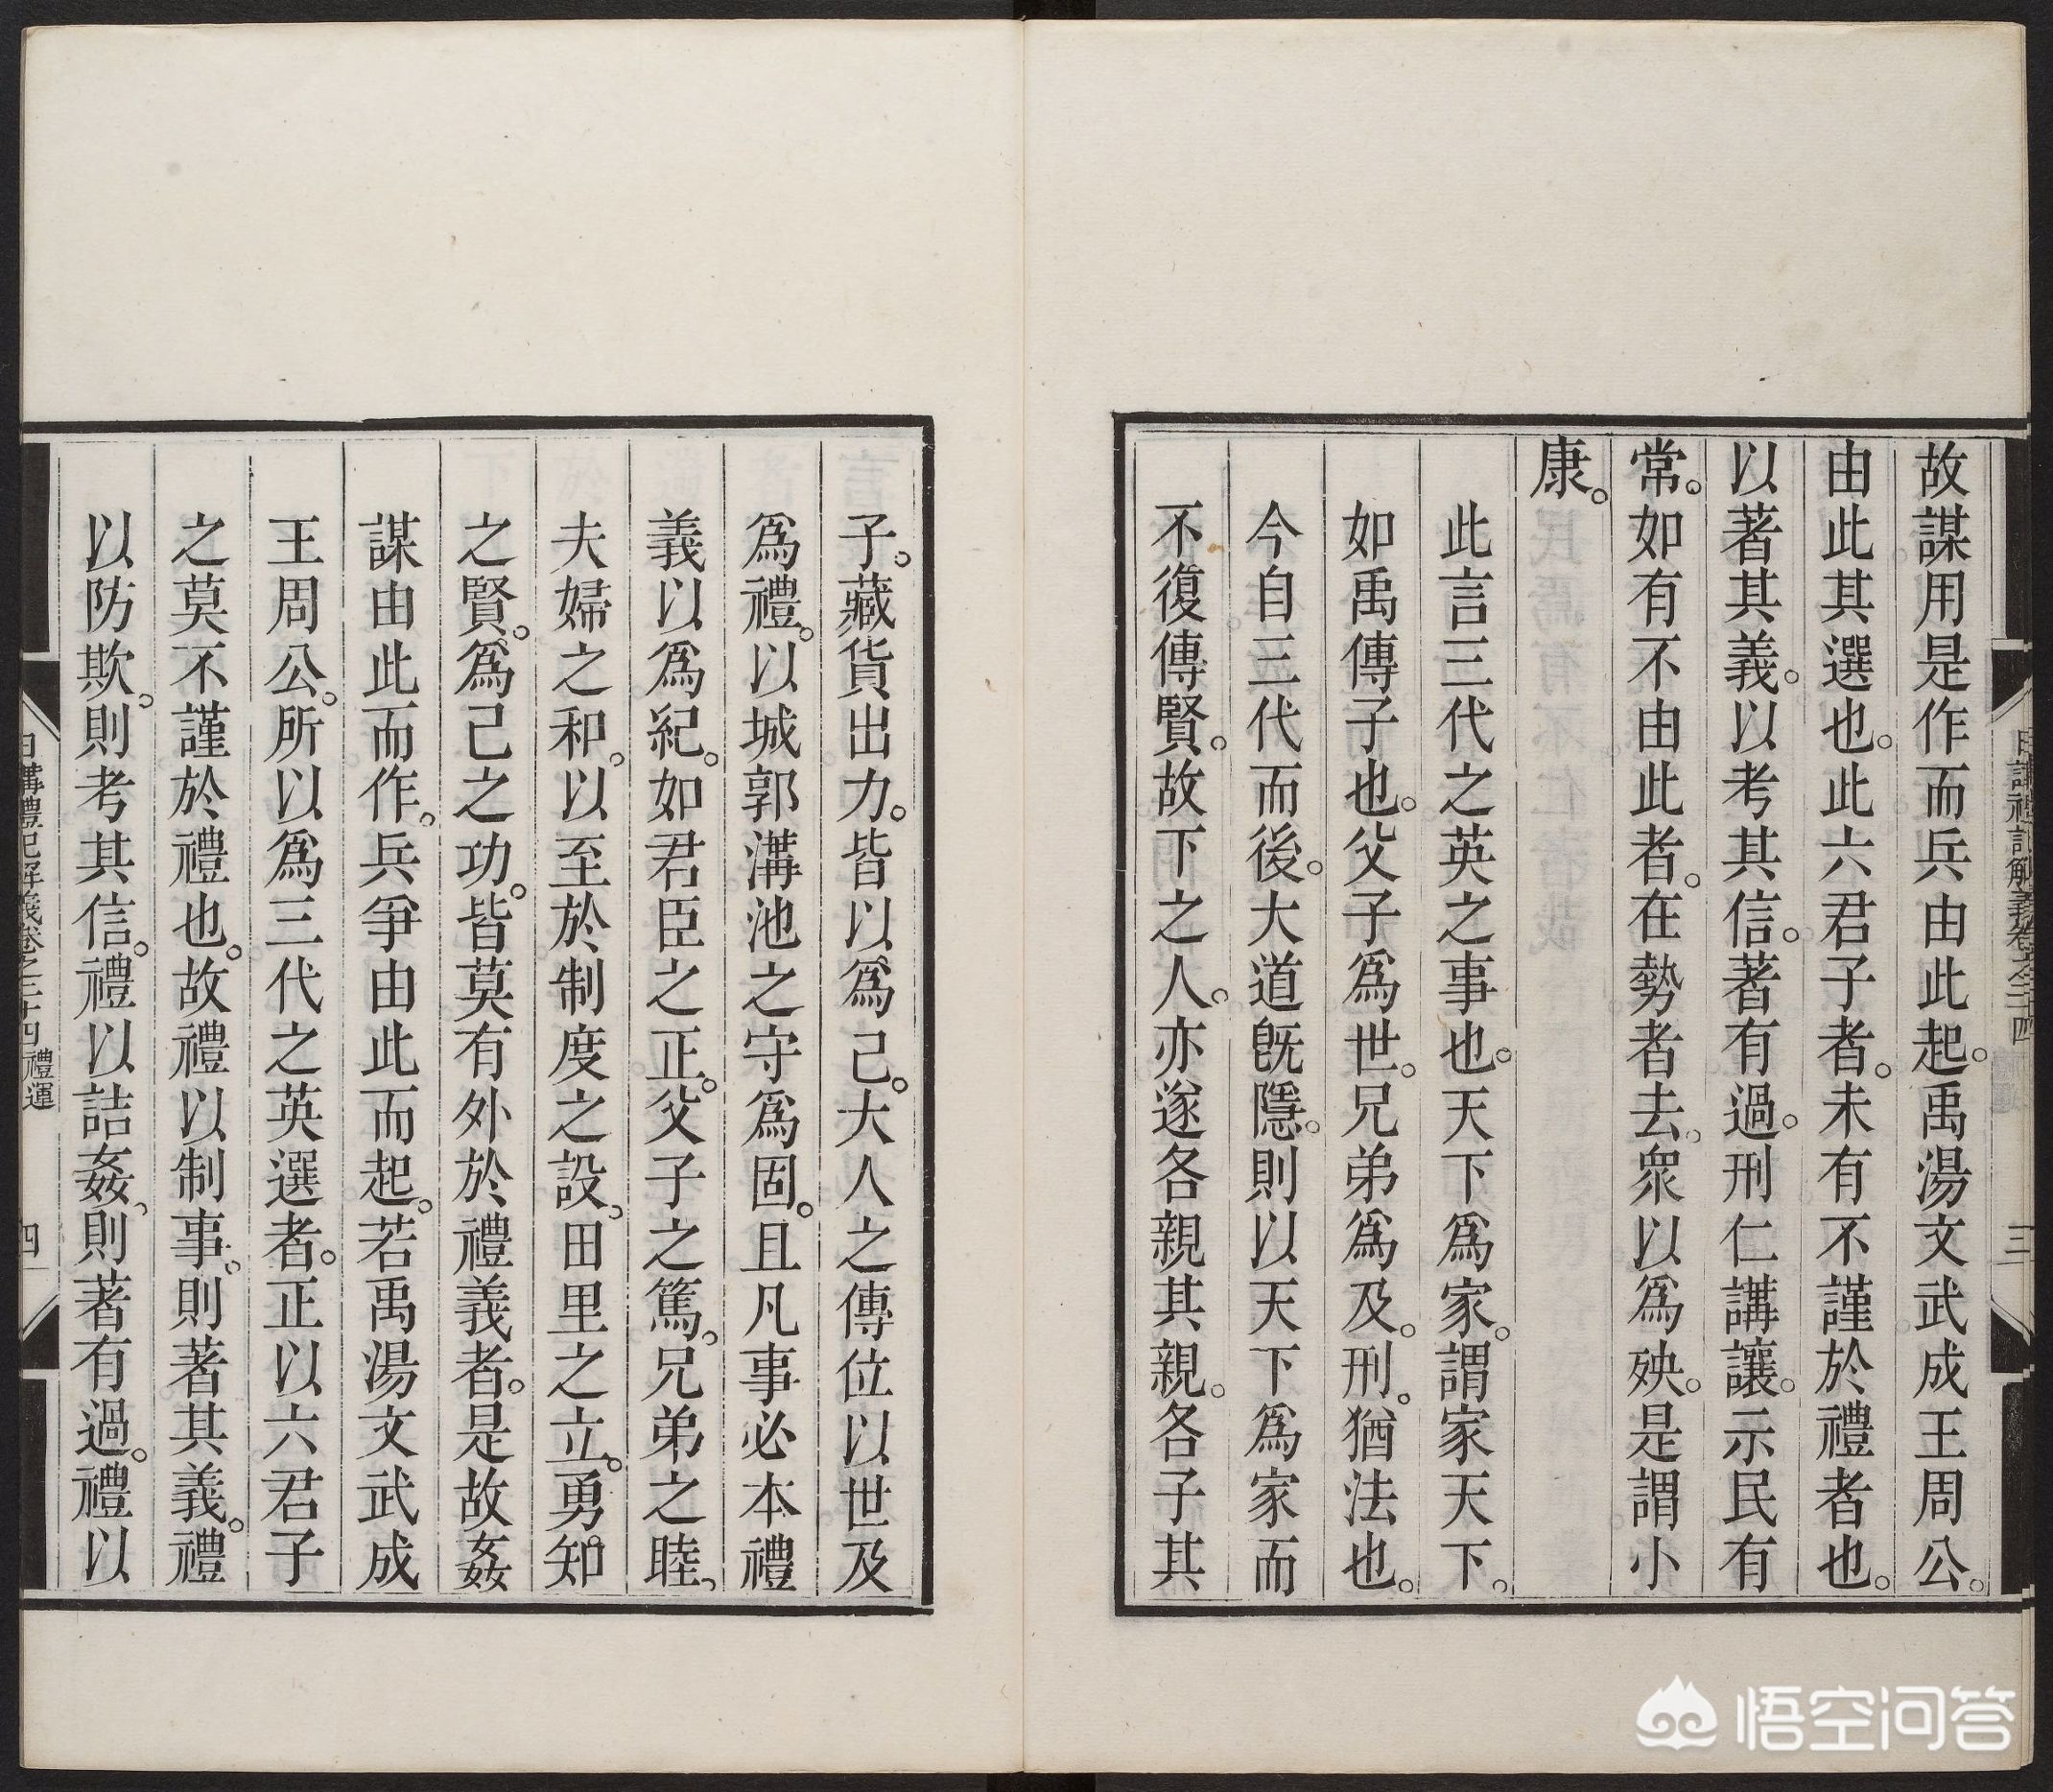 故謀用是作而兵由此起。禹湯文武成王周公。
由此其選也。此六君子者。未有不謹於禮者也。
以著其義。以考其信。著有過。刑仁講讓。示民有
常。如有不由此者。在勢者去。衆以爲殃。是謂小
康。
此言三代之英之事也。天下爲家。謂家天下。
如禹傳子也。父子爲世。兄弟爲及。刑。猶法也。
今自三代而後。大道旣隱。則以天下爲家而
不復傳賢。故下之人。亦遂各親其親。各子其
三
子。藏貨出力。皆以爲己。大人之傳位以世及
爲禮。以城郭溝池之守爲固。且凡事必本禮
義以爲紀。如君臣之正。父子之篤。兄弟之睦。
夫婦之和。以至於制度之設。田里之立。勇知
之賢。爲己之功。皆莫有外於禮義者。是故姦
謀由此而作。兵爭由此而起。若禹湯文武成
王周公。所以爲三代之英選者。正以六君子
之莫不謹於禮也。故禮以制事。則著其義。禮
以防欺。則考其信。禮以詰姦。則著有過。禮以
日講禮記解義卷之三十四 禮運 四
悟空问答